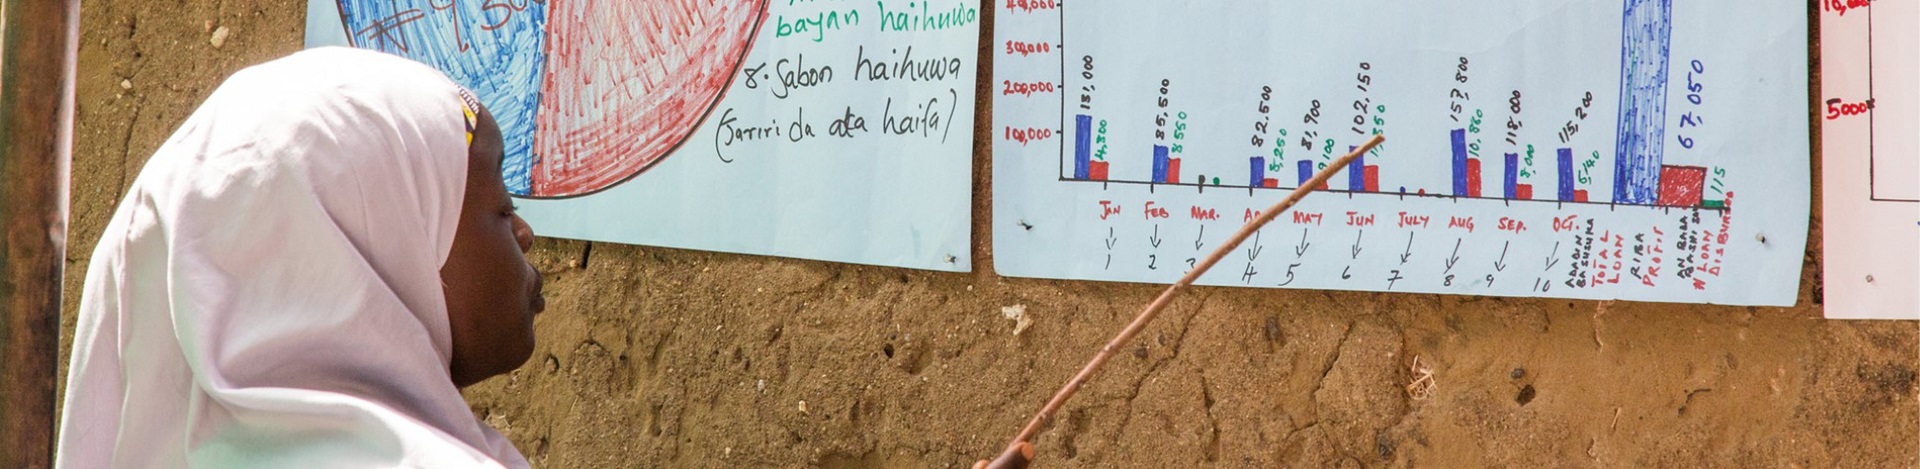 ₦9,500
bayan haihuwa
8. Sabon haihuwa
(Jariri da aka haifa)
400,000
300,000
200,000
100,000
131,000
4,800
85,500
8550
82,500
8,250
81,900
9100
102,150
157,800
10,860
118,000
8,000
115,200
5,140
67,050
115
JAN FEB MAR. MAY JUN JULY AUG SEP. OCT.
1 2 3 4 5 6 7 8 9 10
TOTAL LOAN
RIBA
PROFIT
AN BADA BASHI
LOAN DISBURSED
10,000
5000